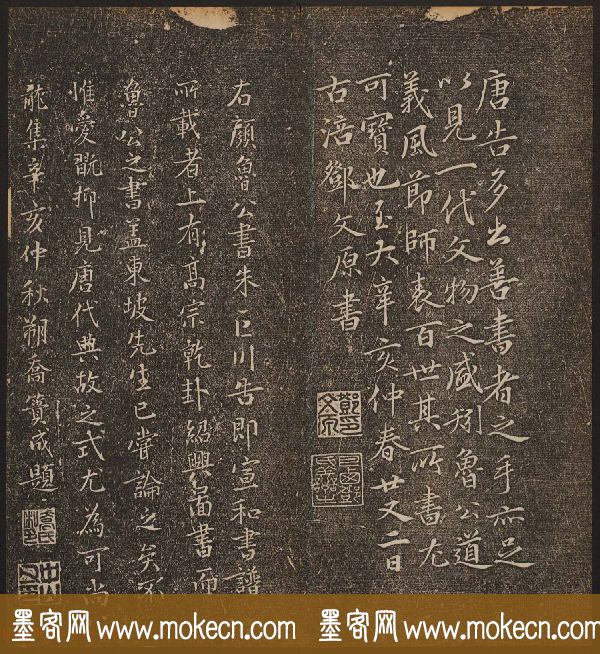 唐告多出善書者之手亦足
以見一代文物之盛矧魯公道
義風節師表百世其所書尤
可寶也至大辛亥仲春廿又二日
古涪鄧文原書
右顏魯公書朱巨川告即宣和書譜
所載者上有高宗乾卦紹興圖書而
魯公之書蓋東坡先生已嘗論之矣不
惟愛翫抑見唐代典故之式尤為可尚
龍集辛亥仲秋朔喬簣成題
墨客网 www.mokecn.com 墨客网 www.mokecn.com